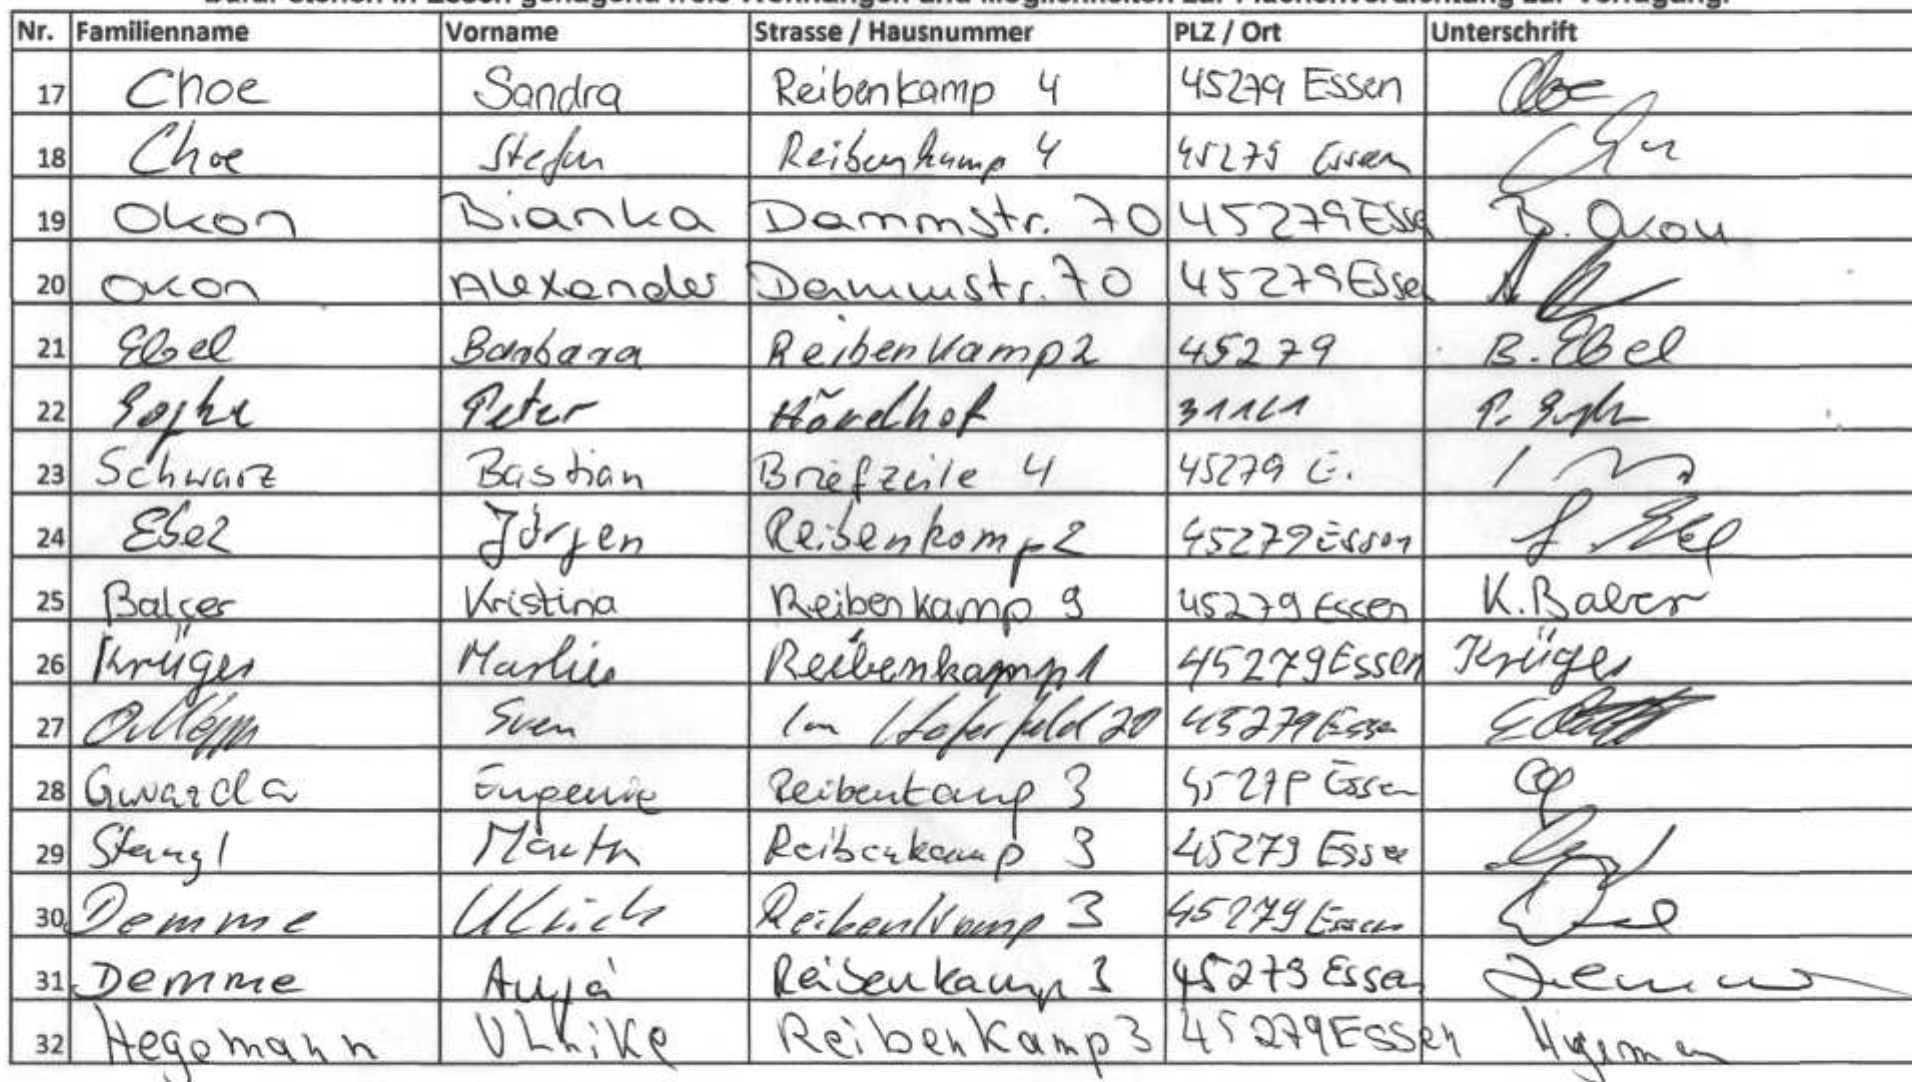 Dafür stehen in Essen genügend freie Wohnungen und Möglichkeiten zur Flächenverdichtung zur Verfügung.
Nr. Familienname Vorname Strasse / Hausnummer PLZ / Ort Unterschrift
17 Choe Sandra Reibenkamp 4 45279 Essen Choe
18 Choe Stefan Reibenkamp 4 45279 Essen
19 Okon Bianka Dammstr. 70 45279 Esse B. Okon
20 Okon Alexander Dammstr. 70 45279 Essen
21 Ebel Barbara Reibenkamp 2 45279 B. Ebel
22 Peter Hövelhof P.
23 Schwarz Bastian Briefzeile 4 45279 E.
24 Ebel Jürgen Reibenkamp 2 45279 Essen J. Ebel
25 Balcer Kristina Reibenkamp 9 45279 Essen K. Balcer
26 Krüger Marlies Reibenkamp 1 45279 Essen Krüger
27 Sven Im Haferfeld 20 45279 Essen
28 Gwarda Eugenie Reibenkamp 3 45279 Essen
29 Stangl Martin Reibenkamp 3 45279 Essen
30 Demme Ulrich Reibenkamp 3 45279 Essen
31 Demme Anja Reibenkamp 3 45279 Essen
32 Hegemann Ulrike Reibenkamp 3 45279 Essen Hegemann